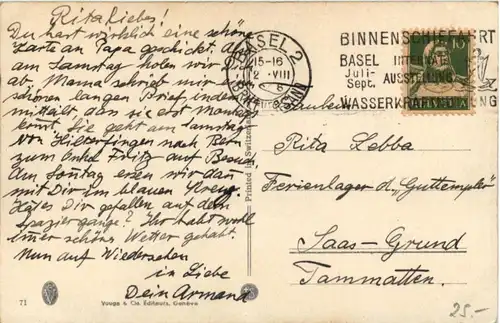 Rita liebes!
Du hast wirklich eine schöne
Karte an Papa geschickt. Am
am Samstag holen wir
ab. Mama schrieb mir ein
schönen langen Brief, indem
mitteilt das sie erst Montags
kommt. Sie geht am Samstag
von Hilterfingen nach Bern
zum Onkel Fritz auf Besuch
Am Sonntag essen wir dann
mit Dir im blauen Kreuz.
Hat es Dir gefallen auf dem
Spaziergange? Ihr habt wohl
immer schönes Wetter gehabt.
Nun auf Wiedersehen
in Liebe
Dein Armand
71
Vouga & Cie, Editeurs, Genève
Printed in Switzerland
BASEL 2
15-16
2 · VIII
BINNENSCHIFFAHRT
BASEL INTERNAT.
Juli-
Sept. AUSSTELLUNG
WASSERKRAFTNUTZUNG
10
Fräulein
Rita Zebba
Ferienlager d. "Guttempler"
Saas-Grund
Tammatten.
25.-